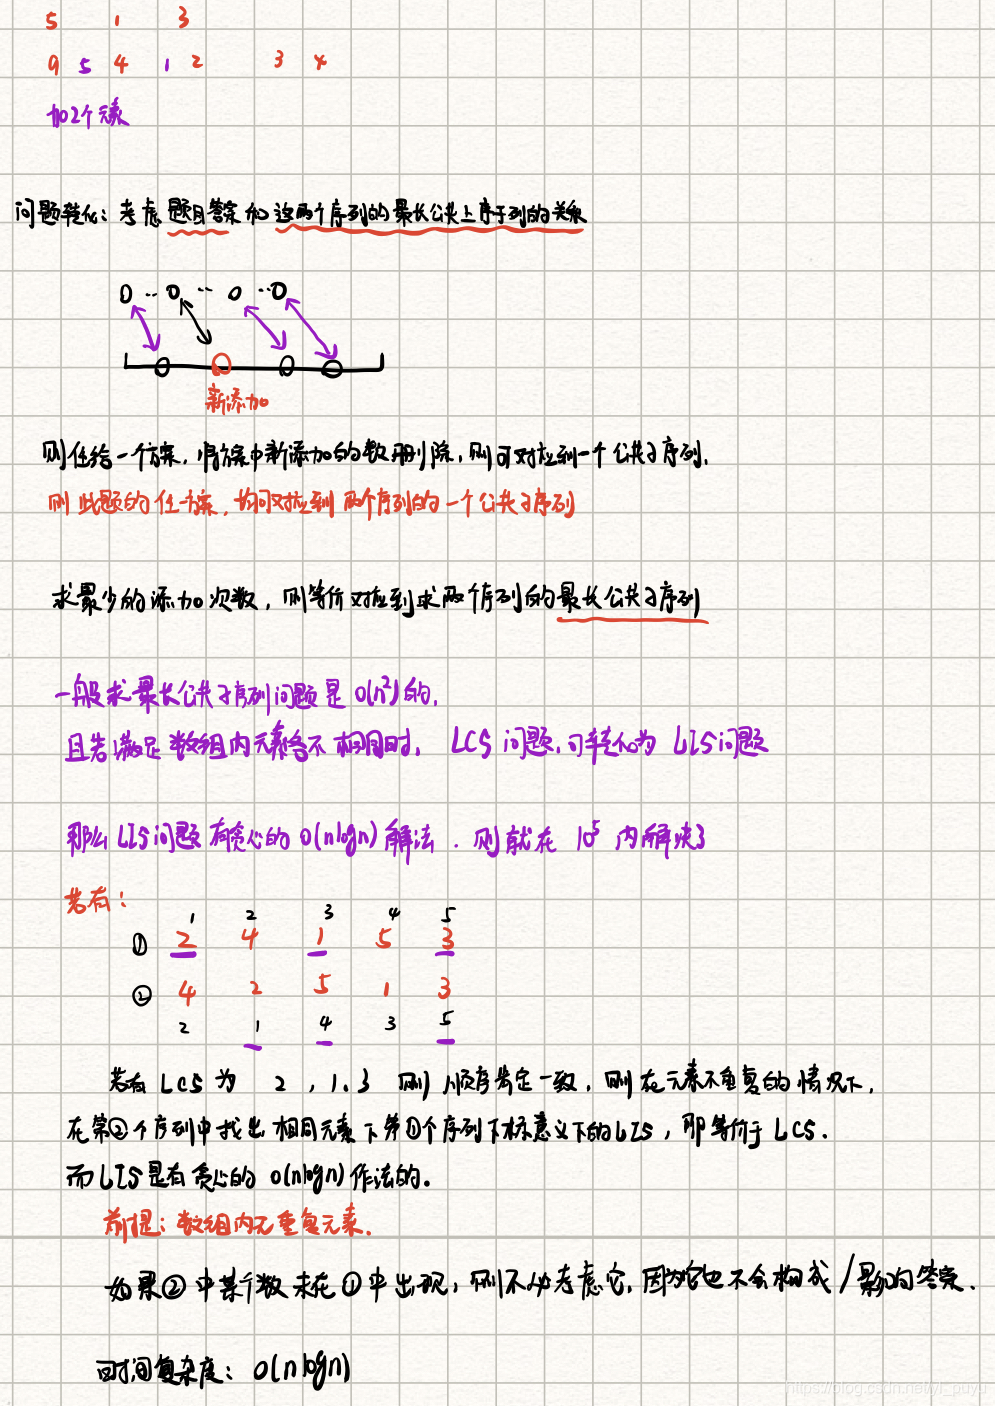 5 1 3
9 5 4 1 2 3 4
加2个元素
问题转化：考虑题目答案和这两个序列的最长公共上序子列的关系
0 ·· 0 ·· 0 ·· 0
新添加
则任给一个方案，将方案中新添加的数删除，则可对应到一个公共子序列.
则此题的任一方案，均可对应到两个序列的一个公共子序列
求最少的添加次数，则等价对应到求两个序列的最长公共子序列
一般求最长公共子序列问题是 O(n²)的.
且若满足数组内元素各不相同时， LCS 问题，可转化为 LIS问题
那么 LIS问题 有贪心的 O(nlogn) 解法 . 则就在 10⁵ 内解决了
若有：
1 2 3 4 5
① 2 4 1 5 3
② 4 2 5 1 3
2 1 4 3 5
若有 LCS 为 2 , 1 . 3 则 顺序肯定一致，则在元素不重复的情况下，
在第②个序列中找出相同元素下第①个序列下标意义下的LIS，即等价于 LCS.
而 LIS 是有贪心的 O(nlogn) 作法的。
前提：数组内无重复元素.
如果②中某个数未在①中出现，则不必考虑它，因为它也不会构成/影响答案.
时间复杂度：O(nlogn)
https://blog.csdn.net/yl_puyu